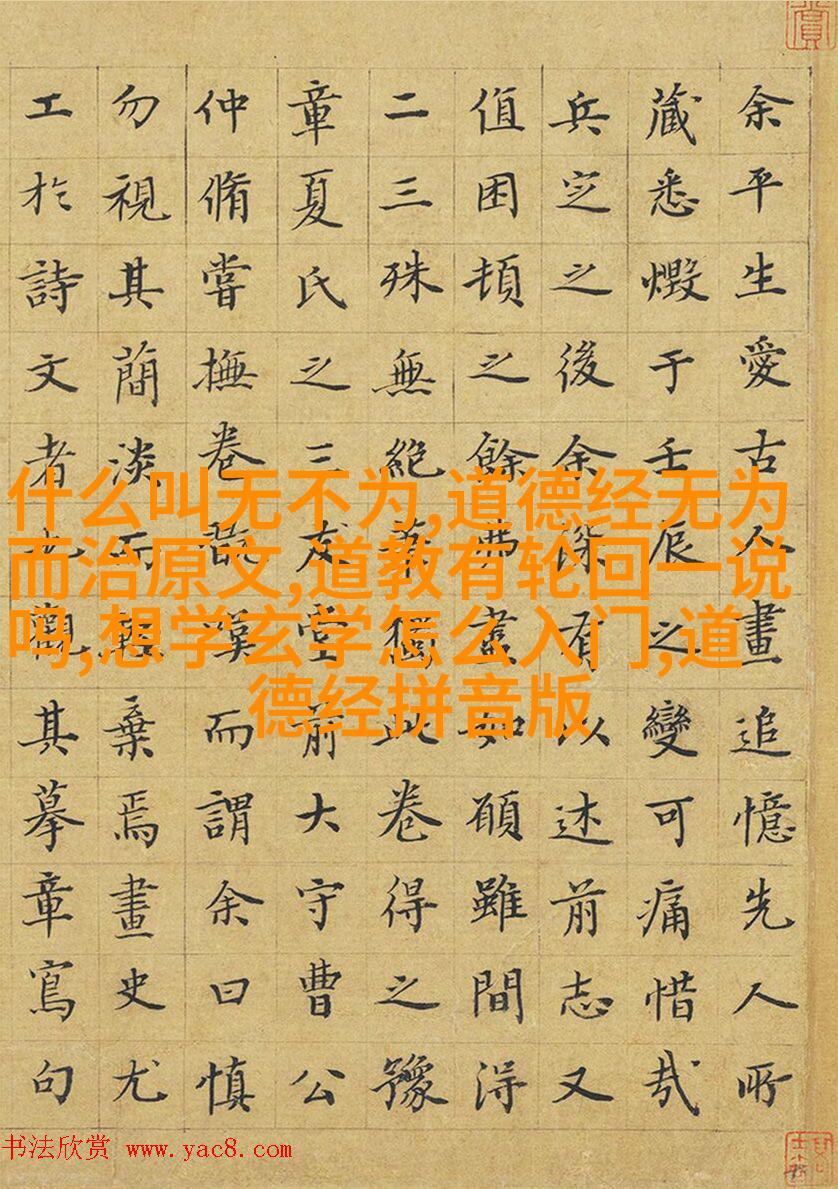 余平生愛古人畫追憶先人所
藏悉燬于壬辰之變可痛惜哉
兵定之後余深有以述前志又
值困頓之餘弗盡如願雖間得
二三殊無絕獨此卷得之豫
章夏氏之三友堂前大守曹公
仲脩嘗撫卷而謂余曰慎
勿視其簡淡而棄焉畫史尤
工於詩文者觀其摹章寫句
什么叫无不为,道德经无为
而治原文,道教有轮回一说
吗,想学玄学怎么入门,道
德经拼音版
书法欣赏 www.yac8.com